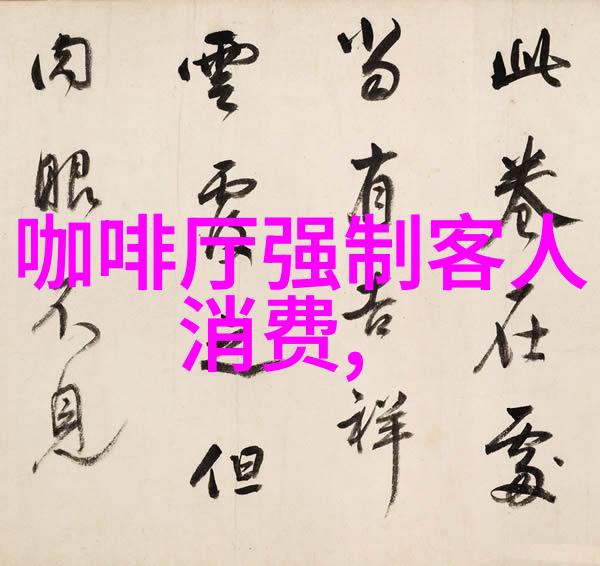 咖啡厅强制客人
消费,
此卷在處
當有吉祥
雲覆之但
肉眼不見